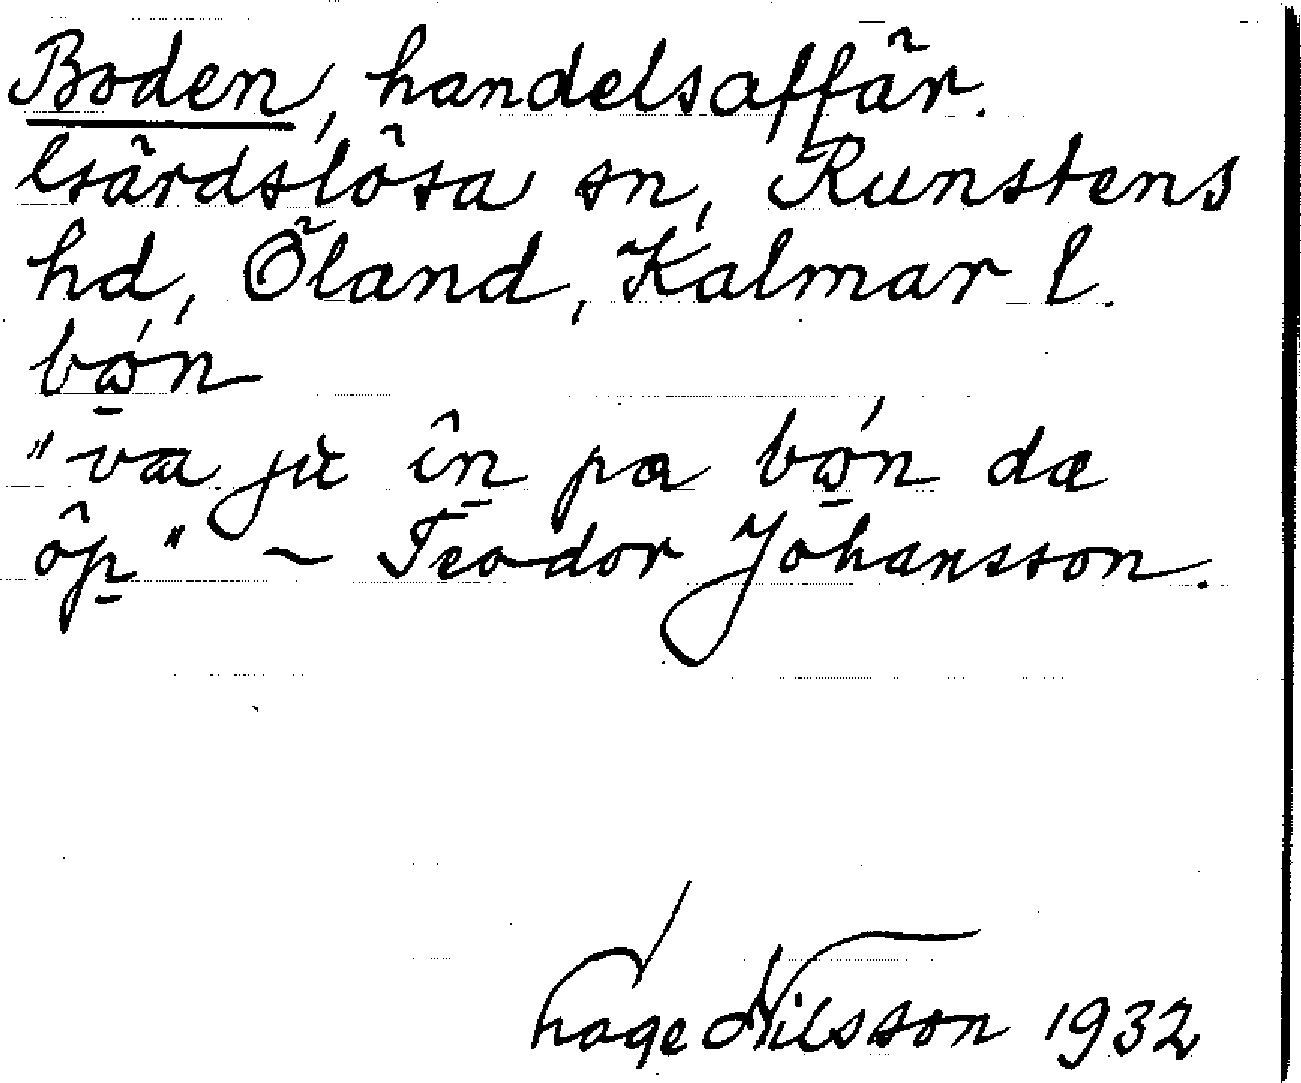 Boden, handelsaffär.
Gärdslösa sn, Runstens
hd, Öland, Kalmar l.
bǫ́n
"va jù în pa bǫ́n da
ôp" ~ Teodor Johansson.
Tage Nilsson 1932